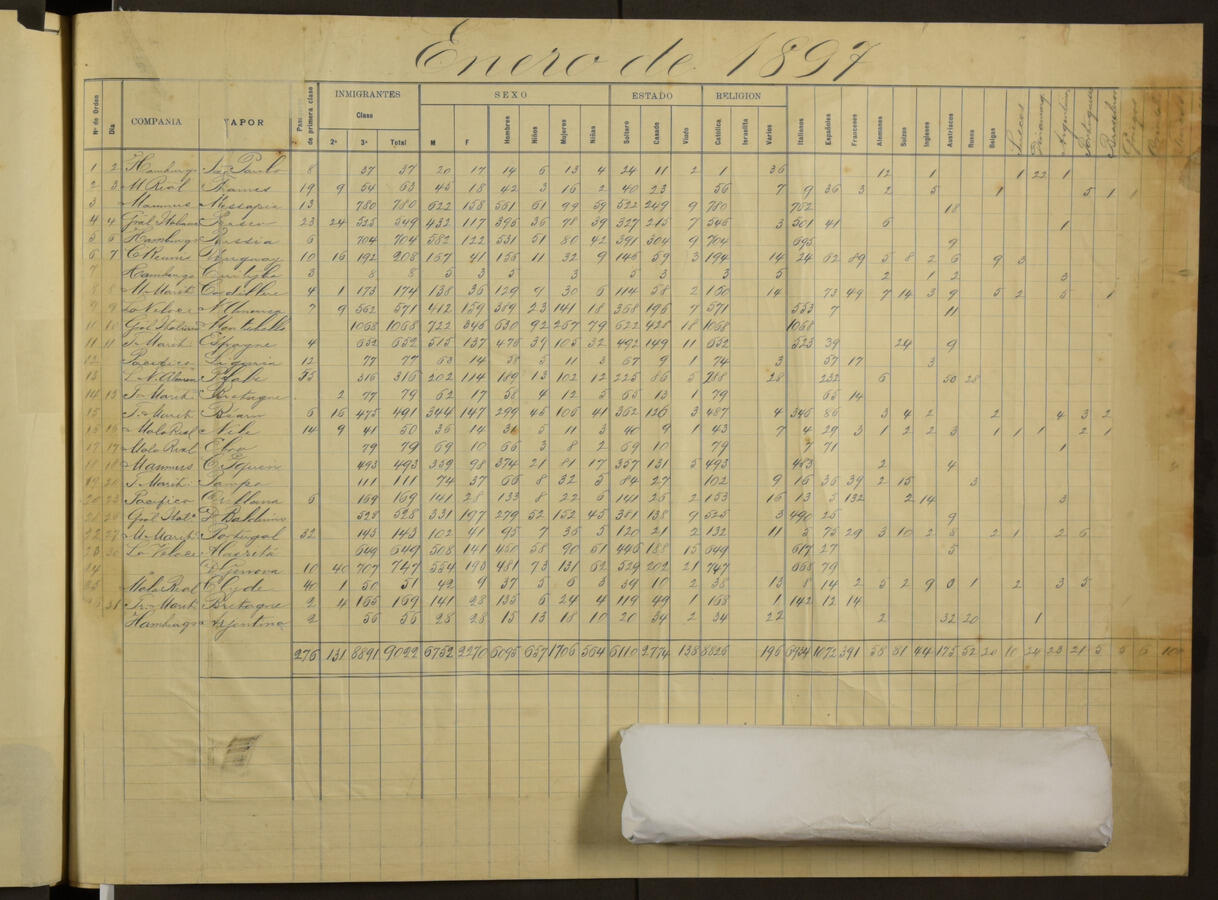 Enero de 1897
Nº de Orden Dia COMPAÑIA VAPOR Pas. de primera clase INMIGRANTES Clase 2ª 3ª Total SEXO M F Hombres Niños Mujeres Niñas ESTADO Soltero Casado Viudo RELIGION Católica Israelita Varios Italianos Españoles Franceses Alemanes Suizos Ingleses Austriacos Rusos Belgas Suecos Dinamarq. Argentinos Portugueses Brasileros Griegos
1 2 Hamburgo Sao Paulo 8 37 37 20 17 14 6 13 4 24 11 2 1 36 12 1 1 22 1
2 3 M Real Thames 19 9 54 63 45 18 42 3 16 2 40 23 56 7 9 36 3 2 5 1 5 1 1
3 Messapia 13 780 780 622 158 561 61 99 59 522 249 9 780 762 18
4 4 Gral Italiana Perseo 23 24 525 549 432 117 396 36 78 39 327 215 7 546 3 501 41 6 1
5 6 Hamburgo Russia 6 704 704 582 122 531 51 80 42 391 304 9 704 695 9
6 7 C Reunis Uruguay 10 16 192 208 167 41 156 11 32 9 146 59 3 194 14 24 62 89 5 8 2 6 9 3
7 Hamburgo 3 8 8 5 3 5 3 5 3 3 5 2 1 2 3
8 8 M. Marit. Cordillere 4 1 173 174 138 36 129 7 30 6 114 58 2 160 14 73 49 7 14 3 9 5 2 5 1
9 9 La Veloce N. America 7 9 562 571 412 159 389 23 141 18 368 196 7 571 553 7 11
10 10 Gral Italiana Montebello 1068 1068 722 346 630 92 267 79 622 428 18 1068 1068
11 11 T. Marit. Espagne 4 652 652 515 137 476 39 105 32 492 149 11 652 523 39 24 9
12 Pacifico Liguria 12 77 77 63 14 58 5 11 3 67 9 1 74 3 57 17 3
13 55 316 316 202 114 189 13 102 12 225 86 5 288 28 232 6 50 28
14 13 T. Marit. Bretagne 2 77 79 62 17 58 4 12 5 65 13 1 79 65 14
15 T. Marit. Bearn 6 16 475 491 344 147 299 45 106 41 362 126 3 487 4 346 86 3 4 2 2 4 3 2
15 16 Mala Real Nile 14 9 41 50 36 14 31 5 11 3 40 9 1 43 7 4 29 3 1 2 2 3 1 1 1 2 1
17 17 Mala Real Ebro 79 79 69 10 66 3 8 2 69 10 79 7 71 1
18 18 493 493 395 98 374 21 81 17 357 131 5 493 483 2 4
19 20 T. Marit. Pampa 111 111 74 37 66 8 32 5 84 27 102 9 16 36 39 2 15 3
20 23 Pacifico Orellana 6 169 169 141 28 133 8 22 6 141 26 2 153 16 13 5 132 2 14 3
Gral Ital. 528 528 331 197 279 52 152 45 381 138 9 525 3 490 25 9
22 27 M. Marit. Portugal 32 143 143 102 41 95 7 36 5 120 21 2 132 11 5 75 29 3 10 2 8 2 1 2 6
23 30 La Veloce 649 649 508 141 450 58 90 51 446 188 15 649 617 27 5
24 " D. Genova 10 40 707 747 554 193 481 73 131 62 529 202 21 747 668 79
25 Mala Real Clyde 40 1 50 51 42 9 37 5 6 3 39 10 2 38 13 8 14 2 5 2 9 0 1 2 3 5
31 Tr. Marit. Bretagne 2 4 165 169 141 28 135 6 24 4 119 49 1 168 1 142 12 14
Hamburgo Argentina 2 56 56 28 28 15 13 18 10 20 34 2 34 22 2 32 20 1
276 131 8891 9022 6752 2270 6095 657 1706 564 6110 2774 138 8826 196 6934 1072 391 58 81 44 175 52 20 10 24 23 21 5 5 6